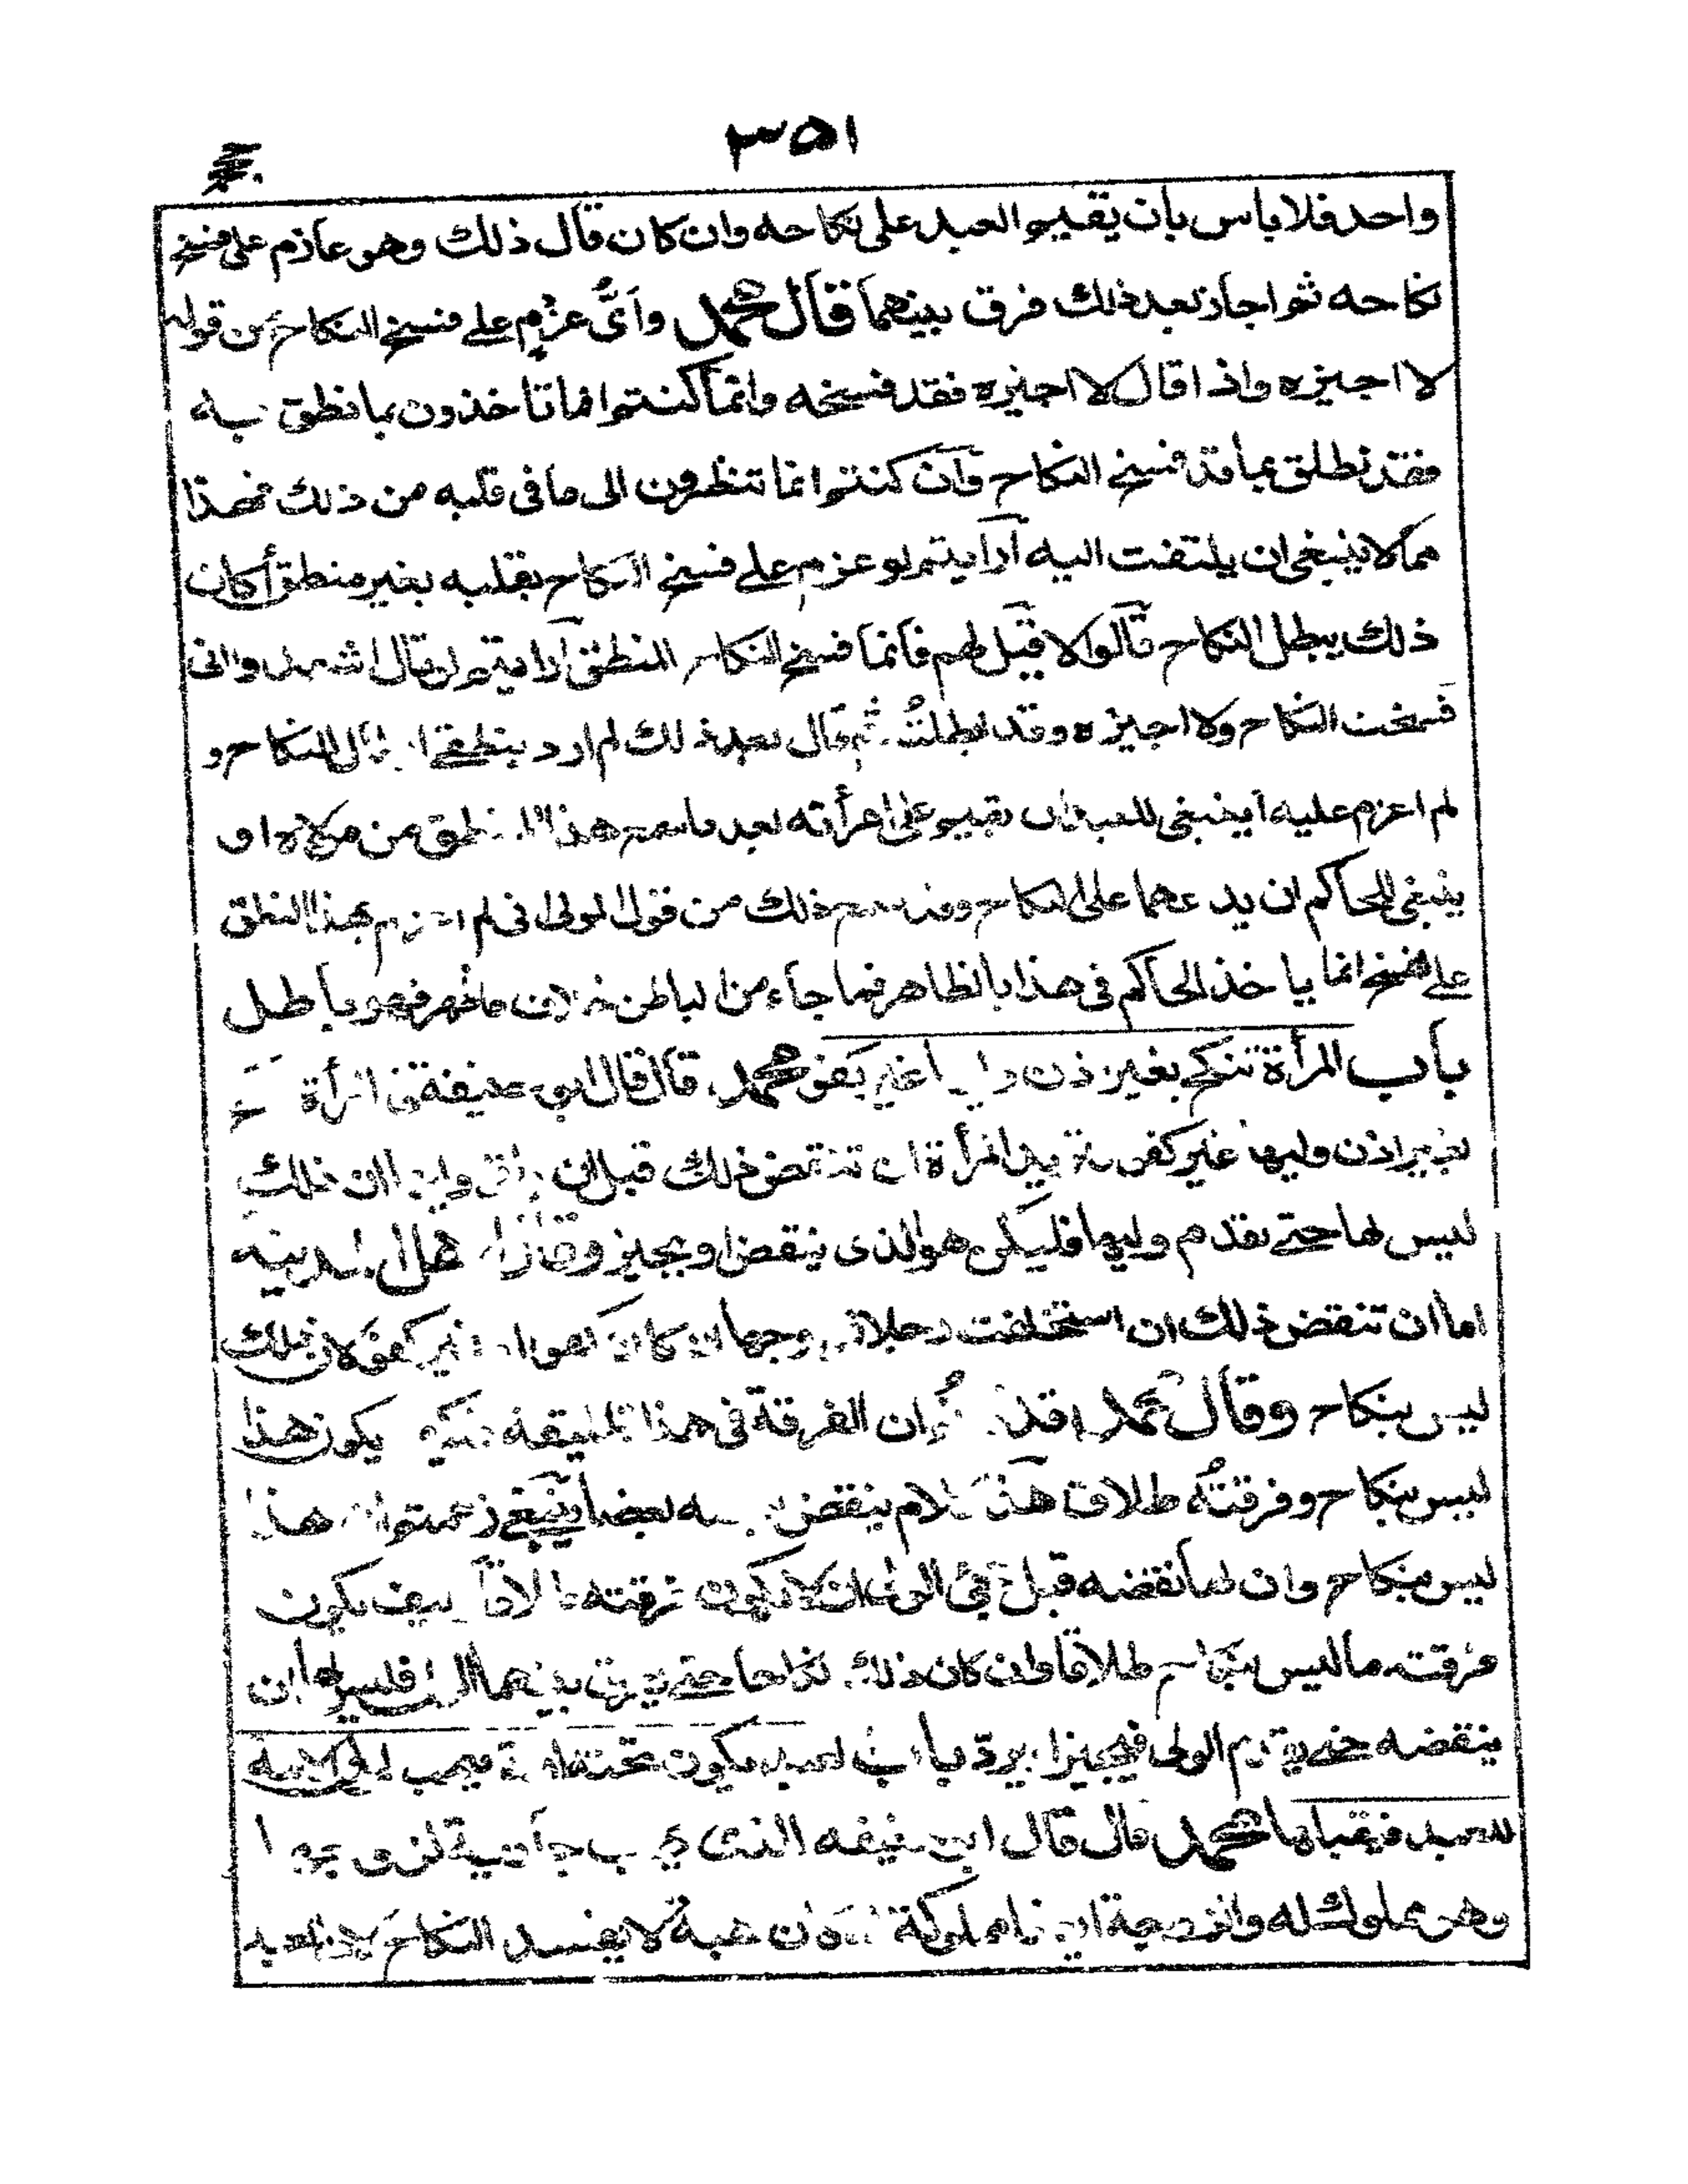 ٣٥١
واحد فلا باس بان يقيم العبد على نكاحه وان كان قال ذلك وهو عازم على فسخ
نكاحه ثم اجاز بعد ذلك فرق بينهما قال محمد وأىُّ عزم على فسخ النكاح من قوله
لا اجيزه واذا قال لا اجيزه فقد فسخه وانما كنتم انما تاخذون بما نطق به
فقد نطق بما قد فسخ النكاح وان كنتم انما تنظرون الى ما فى قلبه من ذلك فهذا
مما لا ينبغى ان يلتفت اليه أرايتم لو عزم على فسخ النكاح بقلبه بغير منطق أكان
ذلك يبطل النكاح قالوا لا قيل لهم فانما فسخ النكاح المنطق أرايتم لو قال اشهدوا انى
فسخت النكاح ولا اجيزه وقد ابطلتُ ثم قال بعد ذلك لم ارد بمنطقى ابطال النكاح و
لم اعزم عليه أينبغى للعبد ان يقيم على امرأته بعد ما سمع هذا نطق من مولاه او
ينبغى للحاكم ان يدعهما على النكاح وقد سمع ذلك من قول المولى انى لم اعزم بهذا النطق
على الفسخ انما ياخذ الحاكم فى هذا بالظاهر فما جاء من الباطن خلاف ما ظهر فهو باطل
باب المرأة تنكح بغير اذن وليها غير كفو محمد قال قال ابو حنيفة فى امرأة
بغير اذن وليها غير كفو المرأة ان تنقض ذلك قبل ان ان ذلك
ليس لها حتى يقدم وليها فليكن هو الذى ينقض او يجيز وقال اهل المدينة
اما ان تنقض ذلك ان استخلفت رجلا زوجها ان كان كفوا او غير كفو لان ذلك
ليس بنكاح وقال محمد ان الفرقة فى هذا تطليقة يكون هذا
ليس بنكاح وفرقتُه طلاق هذا كلام ينقض بعضه بعضا ينبغى زعمتم ان هذا
ليس بنكاح وان لها نقضه قبل الولى ان لا يكون فرقته طلاقا كيف يكون
فرقته ما ليس بنكاح طلاقا وان كان ذلك نكاحا حتى يفرق بينهما الولى فليس لها ان
ينقضه حتى يقدم الولى فيجيز او يرد باب العبد يكون تحته فيهب المولى الامة
للعبد فيقبلها محمد قال قال ابو حنيفة جارية
وهو مملوك له والزوجة ايضا مملوكة ان هبة لا يفسد النكاح